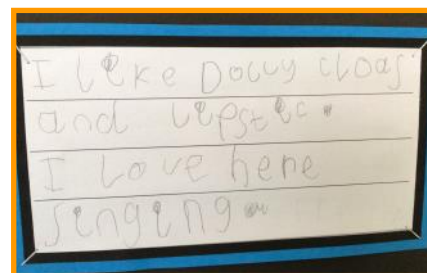 I like Dolly cloas
and lipstic.
I love here
singing